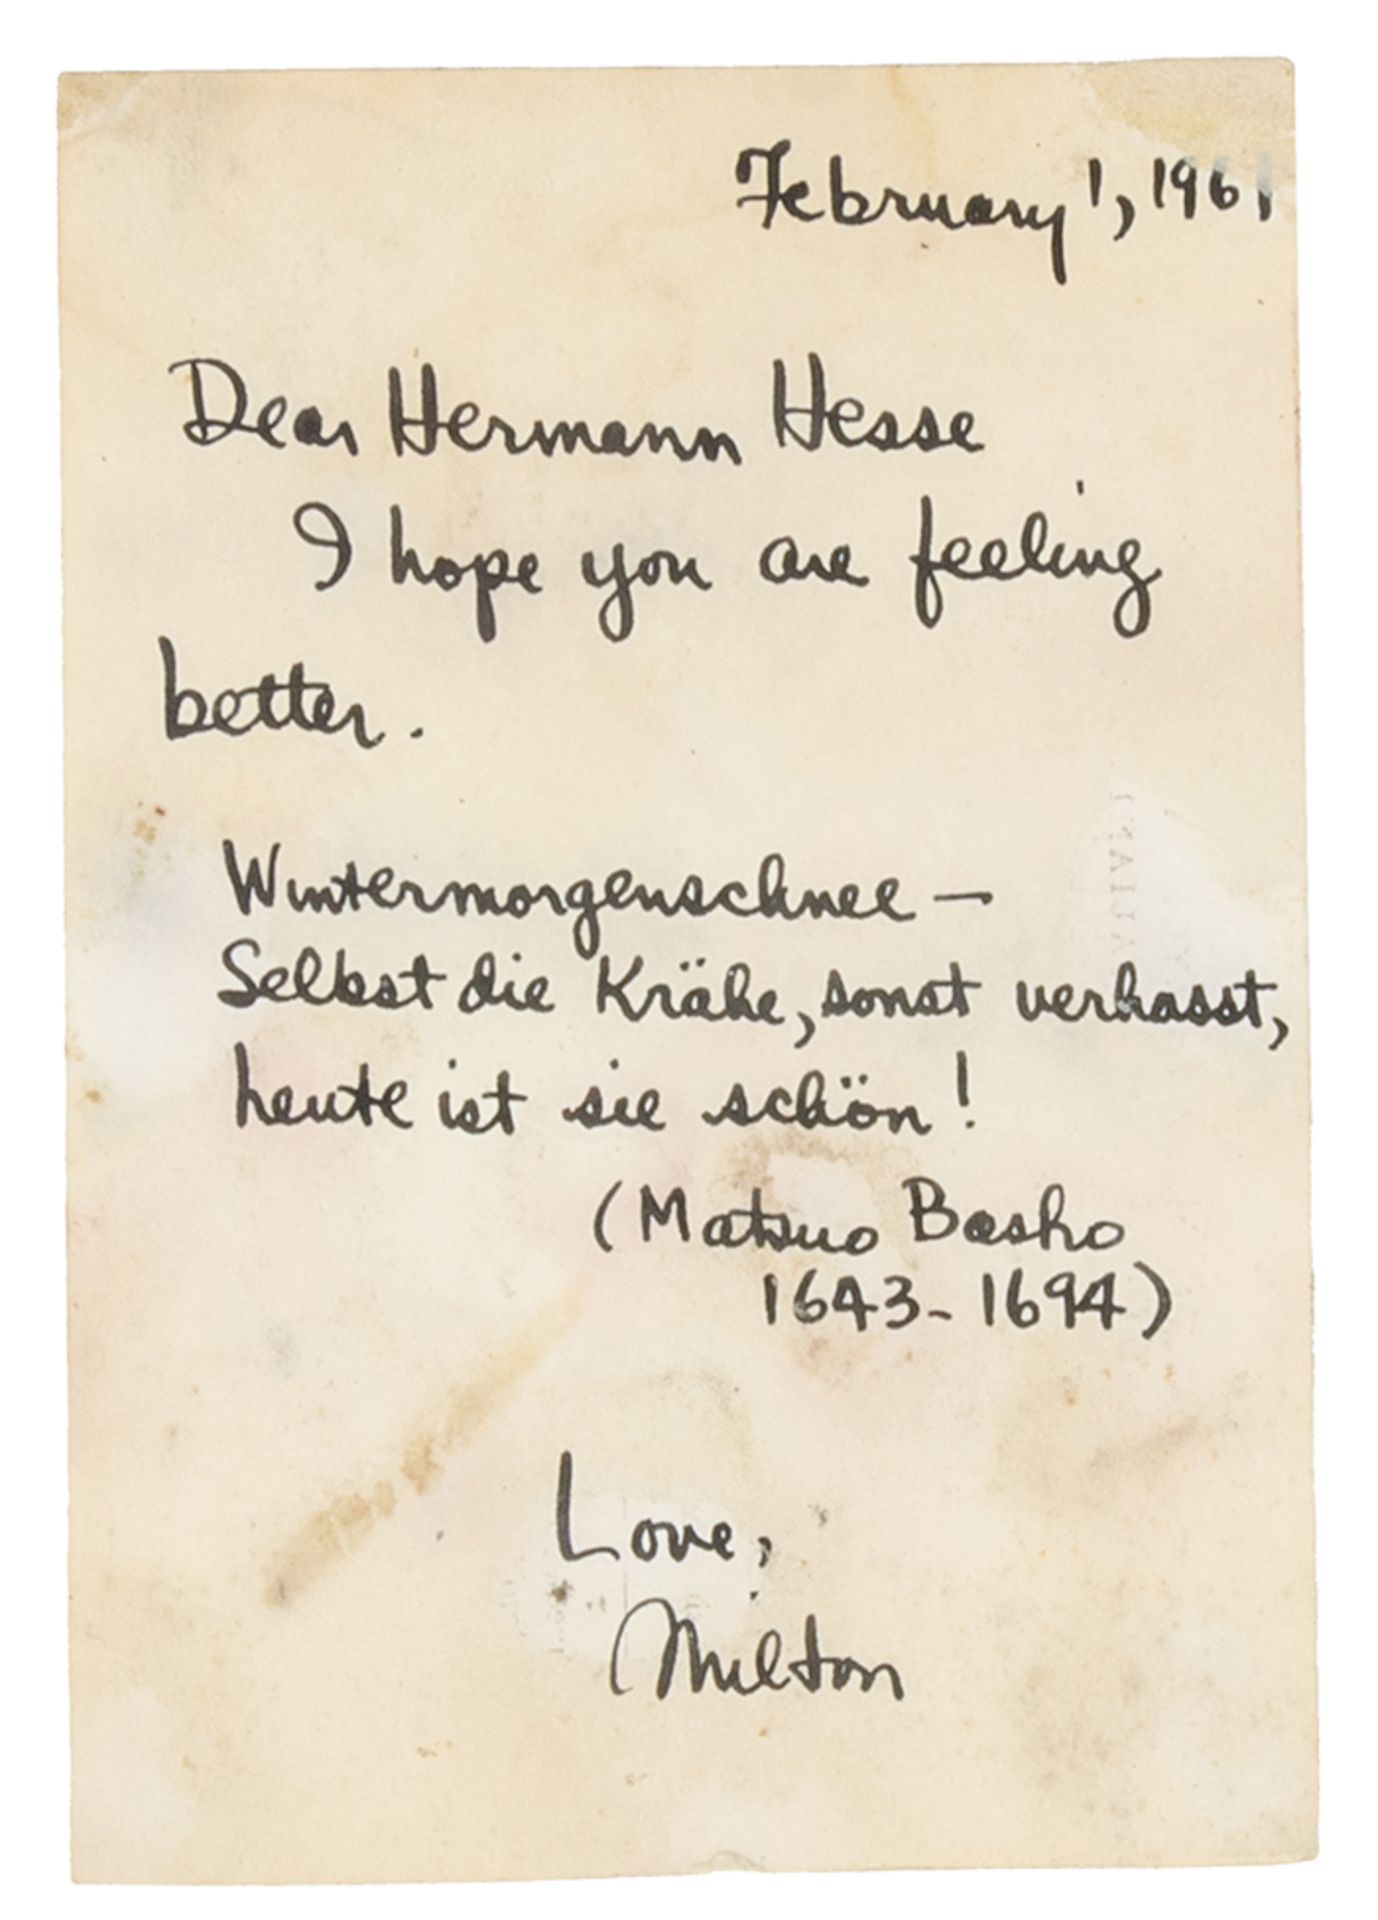 February 1, 1961
Dear Hermann Hesse
I hope you are feeling
better.
Wintermorgenschnee —
Selbst die Krähe, sonst verhasst,
heute ist sie schön!
(Matsuo Basho
1643-1694)
Love,
Milton